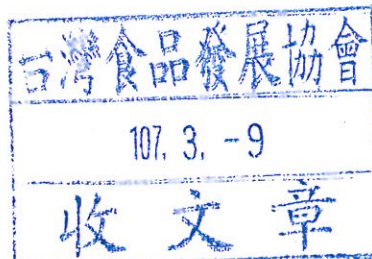 台灣食品發展協會
107. 3. -9
收文章